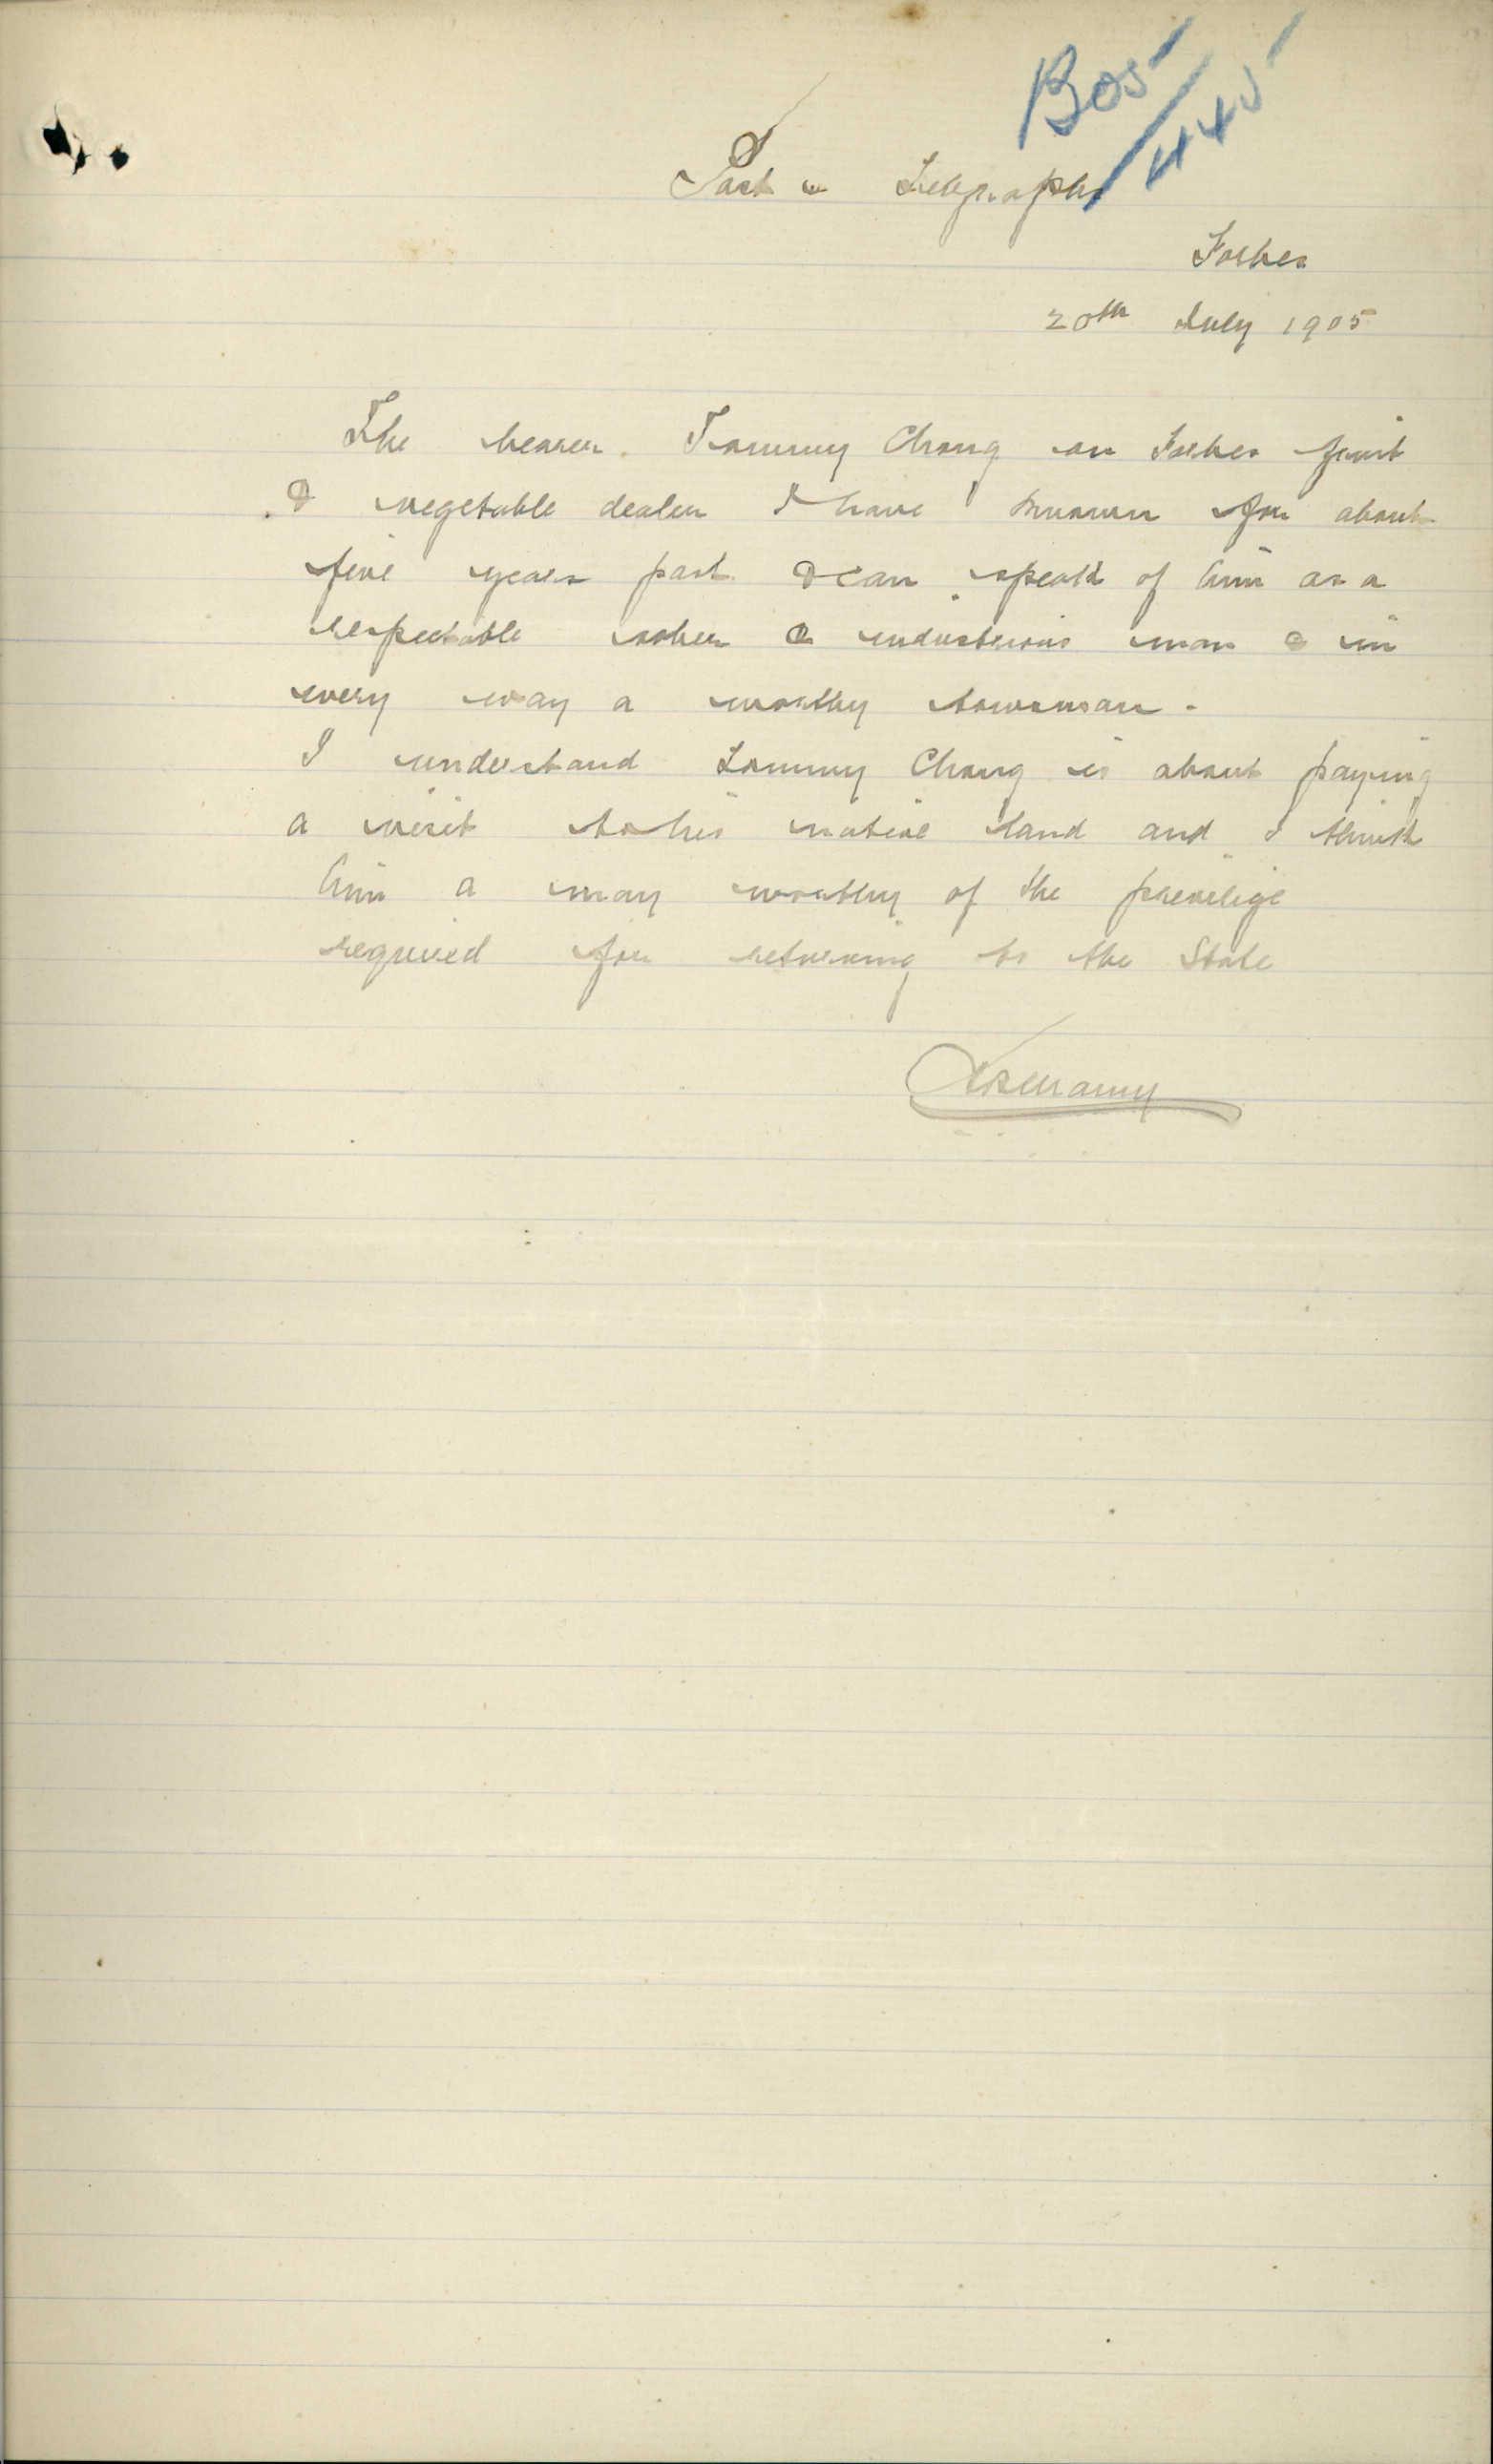 B05/445
Post & Telegraphs
Forbes
20th July 1905
The bearer. Tommy Chong an Forbes fruit
& vegetable dealer I have known for about
five years past & can speak of him as a
respectable sober & industerious man & in
every way a worthy townsman -
I understand Tommy Chong is about paying
a visit to his native land and I think
him a man worthy of the previlige
required for returning to the State